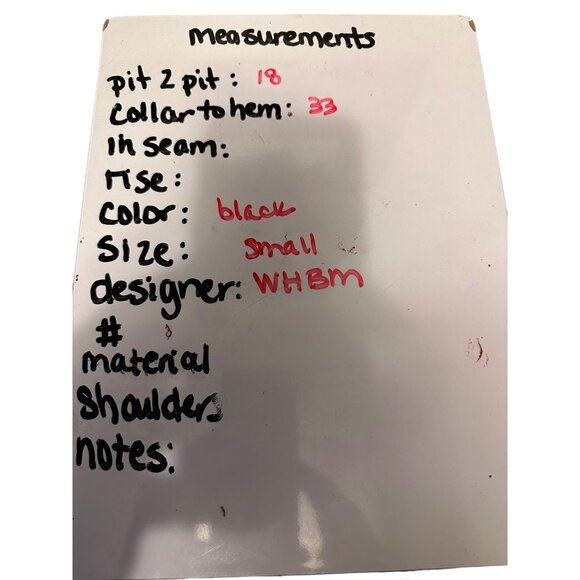 measurements
pit 2 pit: 18
Collar to hem: 33
in seam:
rise:
Color: black
Size: small
designer: WHBM
#
material
Shoulder
notes: